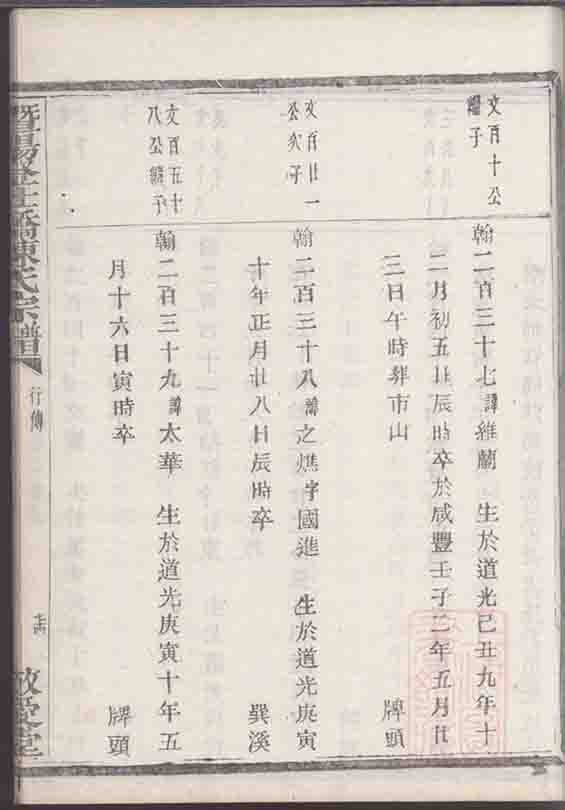 文百十公
嗣子
翰二百三十七諱維蘭 生於道光己丑九年十
二月初五日辰時卒於咸豐壬子二年五月廿
三日午時葬市山 牌頭
文百廿一
公次子
翰二百三十八諱之燋字國進 生於道光庚寅
十年正月廿八日辰時卒 巽溪
文百五十
八公嗣子
翰二百三十九諱太華 生於道光庚寅十年五
月十六日寅時卒 牌頭
陳氏宗譜
行傳